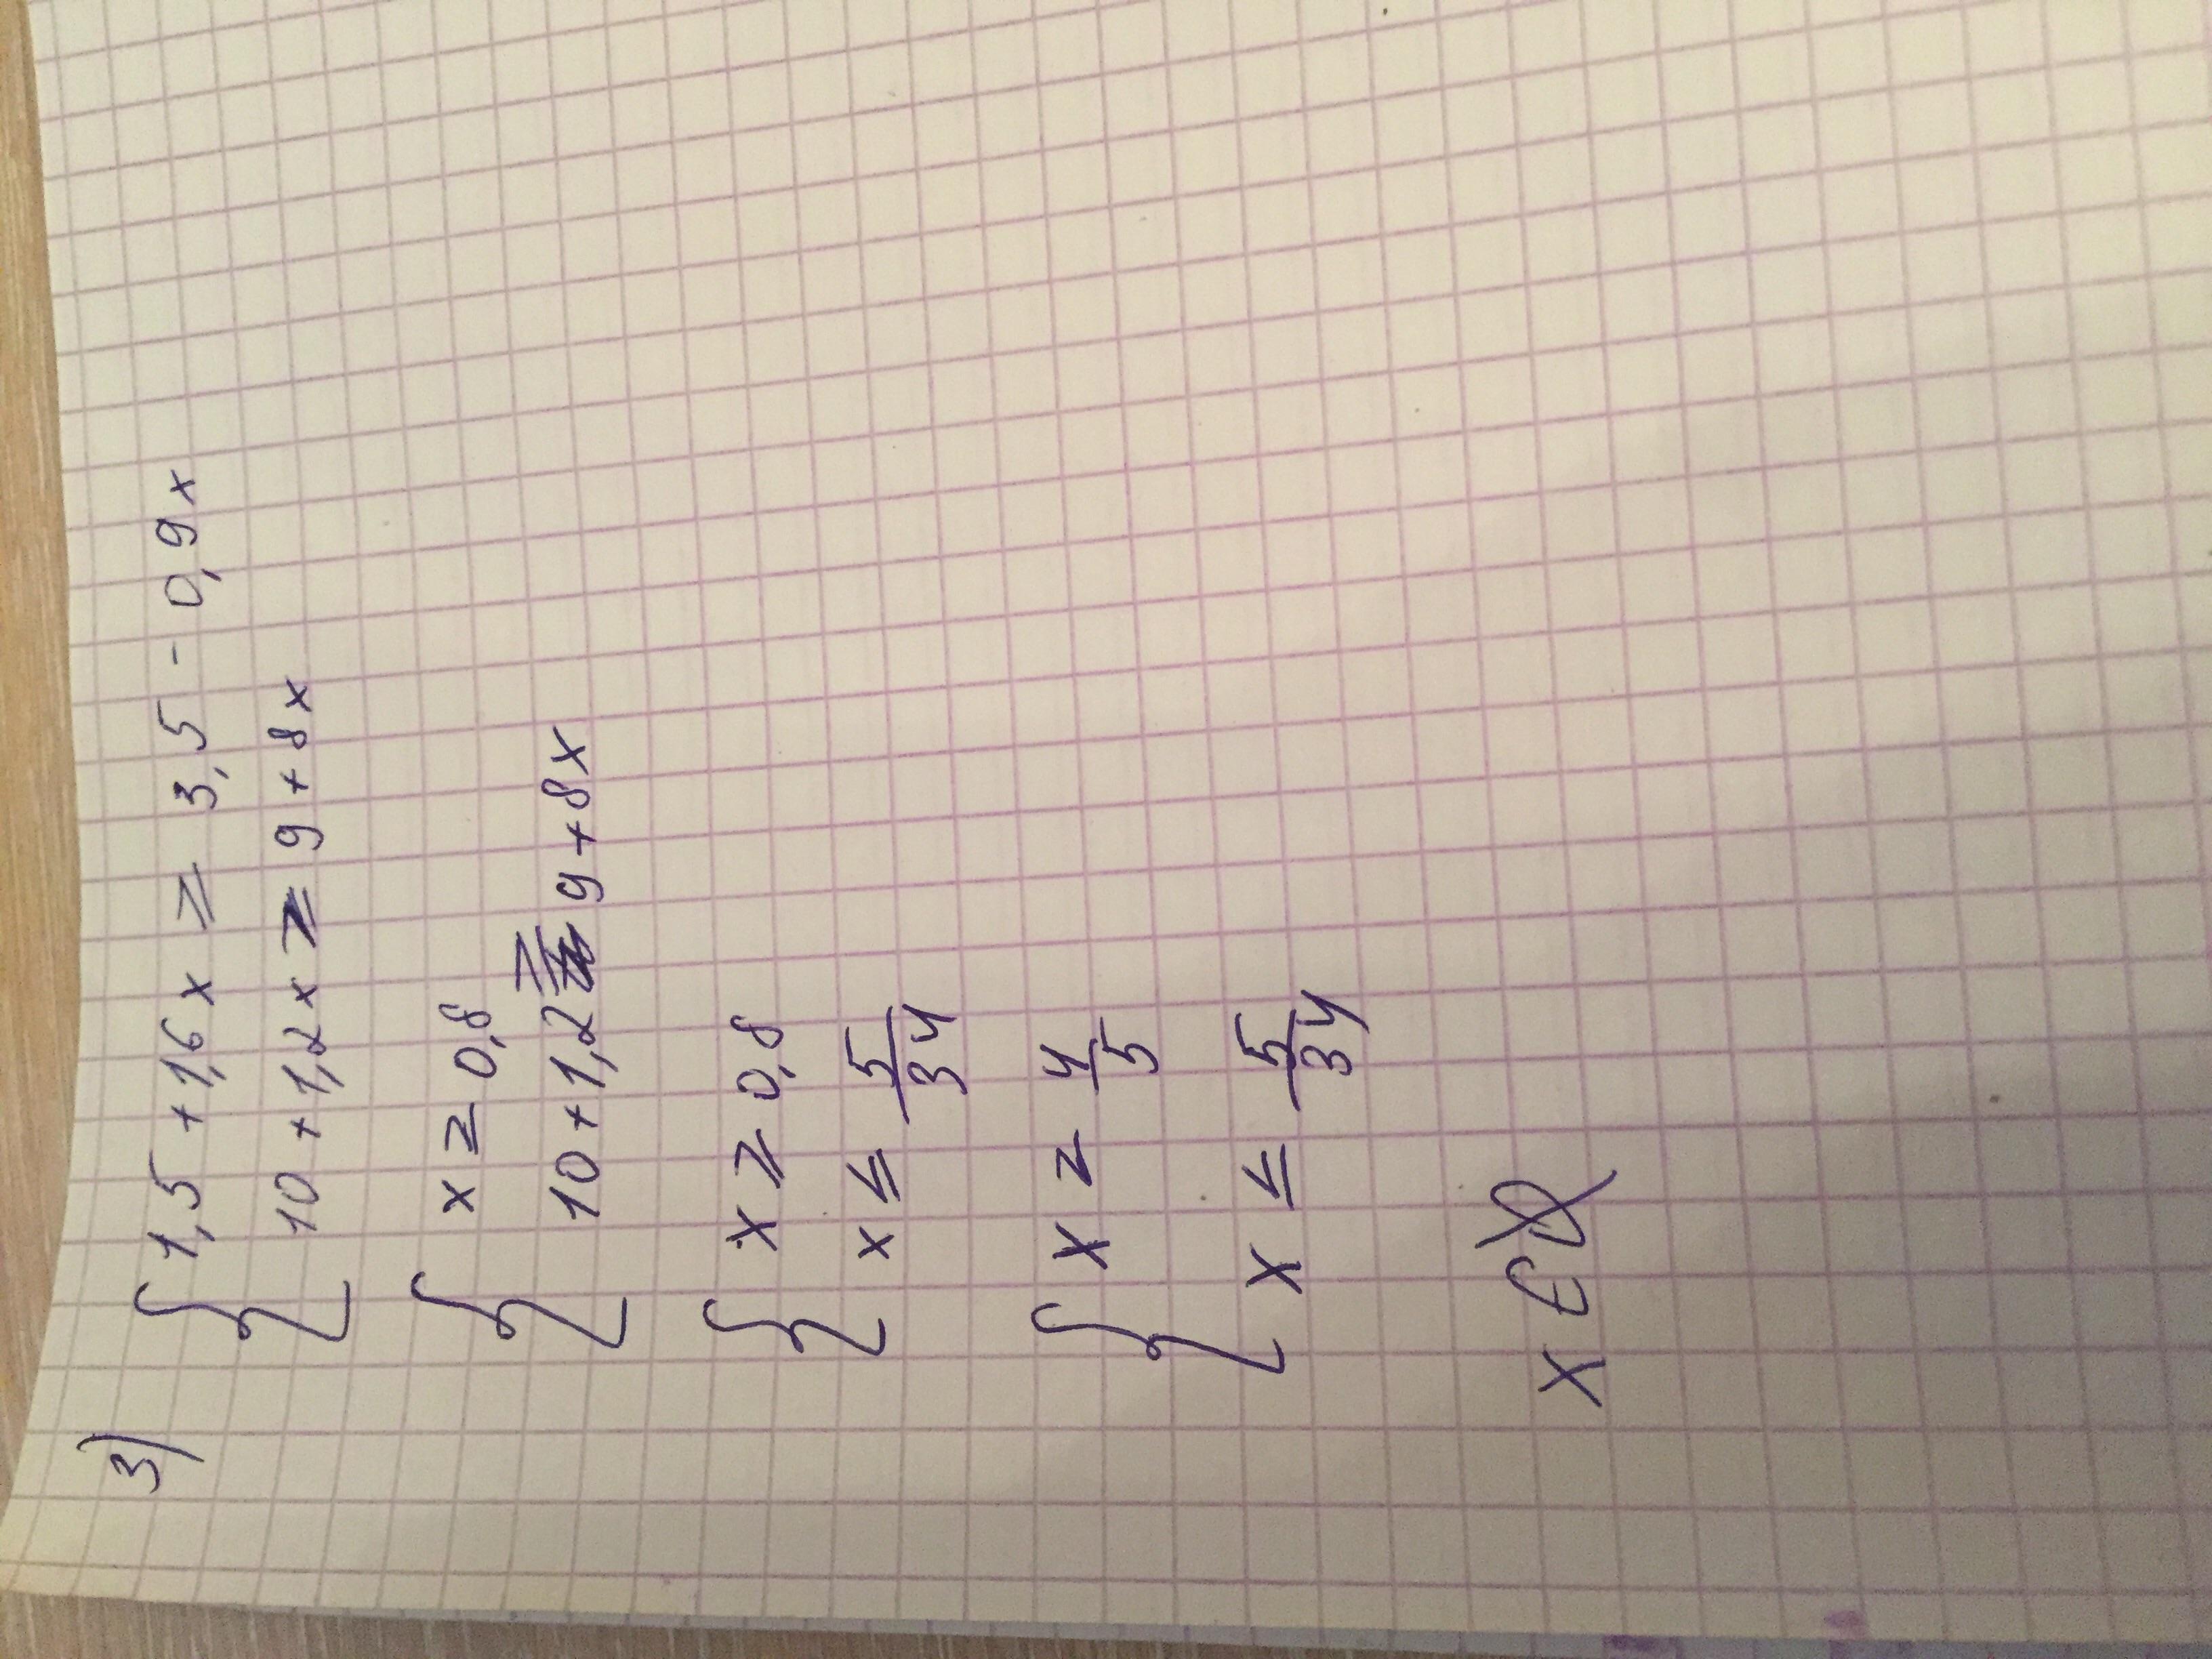 3) { 1,5 + 1,6x ≥ 3,5 - 0,9x
10 + 1,2x ≥ 9 + 8x
{ x ≥ 0,8
10 + 1,2 ≥ 9 + 8x
{ x ≥ 0,8
x ≤ 5/34
{ x ≥ 4/5
x ≤ 5/34
x ∈ ∅